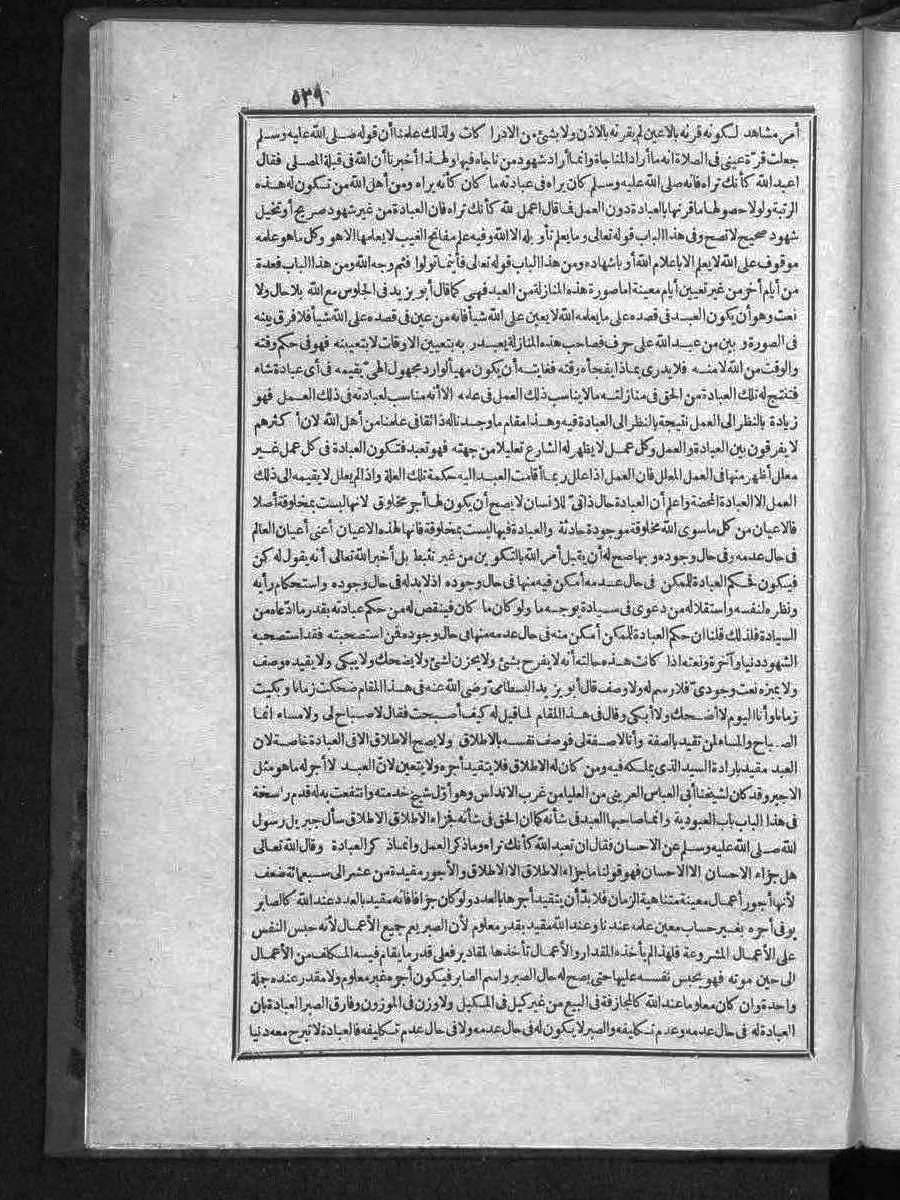 ٥٣٩
أمر مشاهد لكونه قرنه بالاعين لم يقرنه بالاذن ولا بشئ من الادراكات ولذلك علمنا أن قوله صلى الله عليه وسلم
جعلت قرّة عيني في الصلاة انه ما أراد المناجاة وانما أراد شهود من ناجاه فيها ولهذا أخبرنا أن الله في قبلة المصلى فقال
اعبد الله كأنك تراه فانه صلى الله عليه وسلم كان يراه في عبادته ما كان كأنه يراه ومن أهل الله من تكون له هذه
الرتبة ولولا حصولها ما قرنها بالعبادة دون العمل فما قال اعمل لله كأنك تراه فان العبادة من غير شهود صريح أو تخيل
شهود صحيح لا تصح وفي هذا الباب قوله تعالى وما يعلم تأويله الا الله وفيه علم مفاتح الغيب لا يعلمها الا هو وكل ما هو علمه
موقوف على الله لا يعلم الا باعلام الله أو باشهاده ومن هذا الباب قوله تعالى فأينما تولوا فثم وجه الله ومن هذا الباب فعدة
من أيام أخر من غير تعيين أيام معينة اما صورة هذه المنازلة من العبد فهي كما قال أبو يزيد في الجلوس مع الله بلا حال ولا
نعت وهو أن يكون العبد في قصده على ما يعلمه الله لا يعين على الله شيأ فانه من عين في قصده على الله شيأ فلا فرق بينه
في الصورة و بين من عبد الله على حرف فصاحب هذه المنازلة يعبد ربه بتعيين الاوقات لا بتعيينه فهو في حكم وقته
والوقت من الله لا منه فلا يدرى بماذا يفجأه وقته فغايته أن يكون مهيأ لوارد مجهول الهيّ يقيمه في أى عبادة شاء
فتنتج له تلك العبادة من الحق في منازلته ما لا يناسب ذلك العمل في علمه الا أنه مناسب لعبادته في ذلك العمل فهو
زيادة بالنظر الى العمل نتيجة بالنظر الى العبادة فيه وهذا مقام ما وجدنا له ذائقا في علمنا من أهل الله لان أكثرهم
لا يفرقون بين العبادة والعمل وكل عمل لا يظهر له الشارع تعليلا من جهته فهو تعبد فتكون العبادة في كل عمل غير
معلل أظهر منها في العمل المعلل فان العمل اذا علل ربما أقامت العبد اليه حكمة تلك العلة واذا لم يعلل لا يقيمه الى ذلك
العمل الا العبادة المحضة واعلم أن العبادة حال ذاتيّ للانسان لا يصح أن يكون لها أجر مخلوق لانها ليست بمخلوقة أصلا
فالاعيان من كل ما سوى الله مخلوقة موجودة حادثة والعبادة فيها ليست بمخلوقة فانها لهذه الاعيان أعنى أعيان العالم
في حال عدمه وفي حال وجوده وبها صح له أن يقبل أمر الله بالتكوين من غير تثبط بل أخبر الله تعالى أنه يقول له كن
فيتكون فحكم العبادة للممكن في حال عدمه أمكن فيه منها في حال وجوده اذ لا بد له في حال وجوده واستحكام رأيه
ونظره لنفسه واستقلاله من دعوى في سيادة بوجه ما ولو كان ما كان فينقص له من حكم عبادته بقدر ما ادّعاه من
السيادة فلذلك قلنا ان حكم العبادة للممكن أمكن منه في حال عدمه منها في حال وجوده فمن استصحبته فقد استصحبه
الشهود دنيا وآخرة ونعته اذا كانت هذه حالته أنه لا يفرح بشئ ولا يحزن لشئ ولا يضحك ولا يبكي ولا يقيده وصف
ولا يميزه نعت وجوديّ فلا رسم له ولا وصف قال أبو يزيد البسطاميّ رضي الله عنه في هذا المقام ضحكت زمانا وبكيت
زمانا وأنا اليوم لا أضحك ولا أبكي وقال في هذا المقام لما قيل له كيف أصبحت فقال لا صباح لي ولا مساء انما
الصباح والمساء لمن تقيد بالصفة وأنا لا صفة لي فوصف نفسه بالاطلاق ولا يصح الاطلاق الا في العبادة خاصة لان
العبد مقيد بارادة السيد الذي يملكه فيه ومن كان له الاطلاق فلا يتقيد أجره ولا يتعين لانّ العبد لا أجر له ما هو مثل
الاجير وقد كان لشيخنا أبي العباس العريني من العليا من غرب الاندلس وهو أوّل شيخ خدمته وانتفعت به له قدم راسخة
في هذا الباب باب العبودية وانما صاحبها العبد في شأنه كما ان الحق في شأنه فجزاء الاطلاق الاطلاق سأل جبريل رسول
الله صلى الله عليه وسلم عن الاحسان فقال ان تعبد الله كأنك تراه وما ذكر العمل وانما ذكر العبادة وقال الله تعالى
هل جزاء الاحسان الا الاحسان فهو قولنا ما جزاء الاطلاق الا الاطلاق والأجور مقيدة من عشر الى سبعمائة ضعف
لأنها أجور أعمال معينة متناهية الزمان فلا بدّ أن يتقيد أجرها بالعدد ولو كان جزافا فانه مقيد بالعدد عند الله كالصابر
يوفى أجره بغير حساب معين علمه عندنا وعند الله مقيد بقدر معلوم لأن الصبر يعم جميع الأعمال لأنه حبس النفس
على الأعمال المشروعة فلهذا لم يأخذه المقدار والأعمال تأخذها المقادير فعلى قدر ما يقام فيه المكلف من الأعمال
الى حين موته فهو يحبس نفسه عليها حتى يصح له حال الصبر واسم الصابر فيكون أجره غير معلوم ولا مقدر عنده جملة
واحدة وان كان معلوما عند الله كالمجازفة في البيع من غير كيل في المكيل ولا وزن في الموزون وفارق الصبر العبادة بان
العبادة له في حال عدمه وعدم تكليفه والصبر لا يكون له في حال عدمه ولا في حال عدم تكليفه فالعبادة لا تبرح معه دنيا